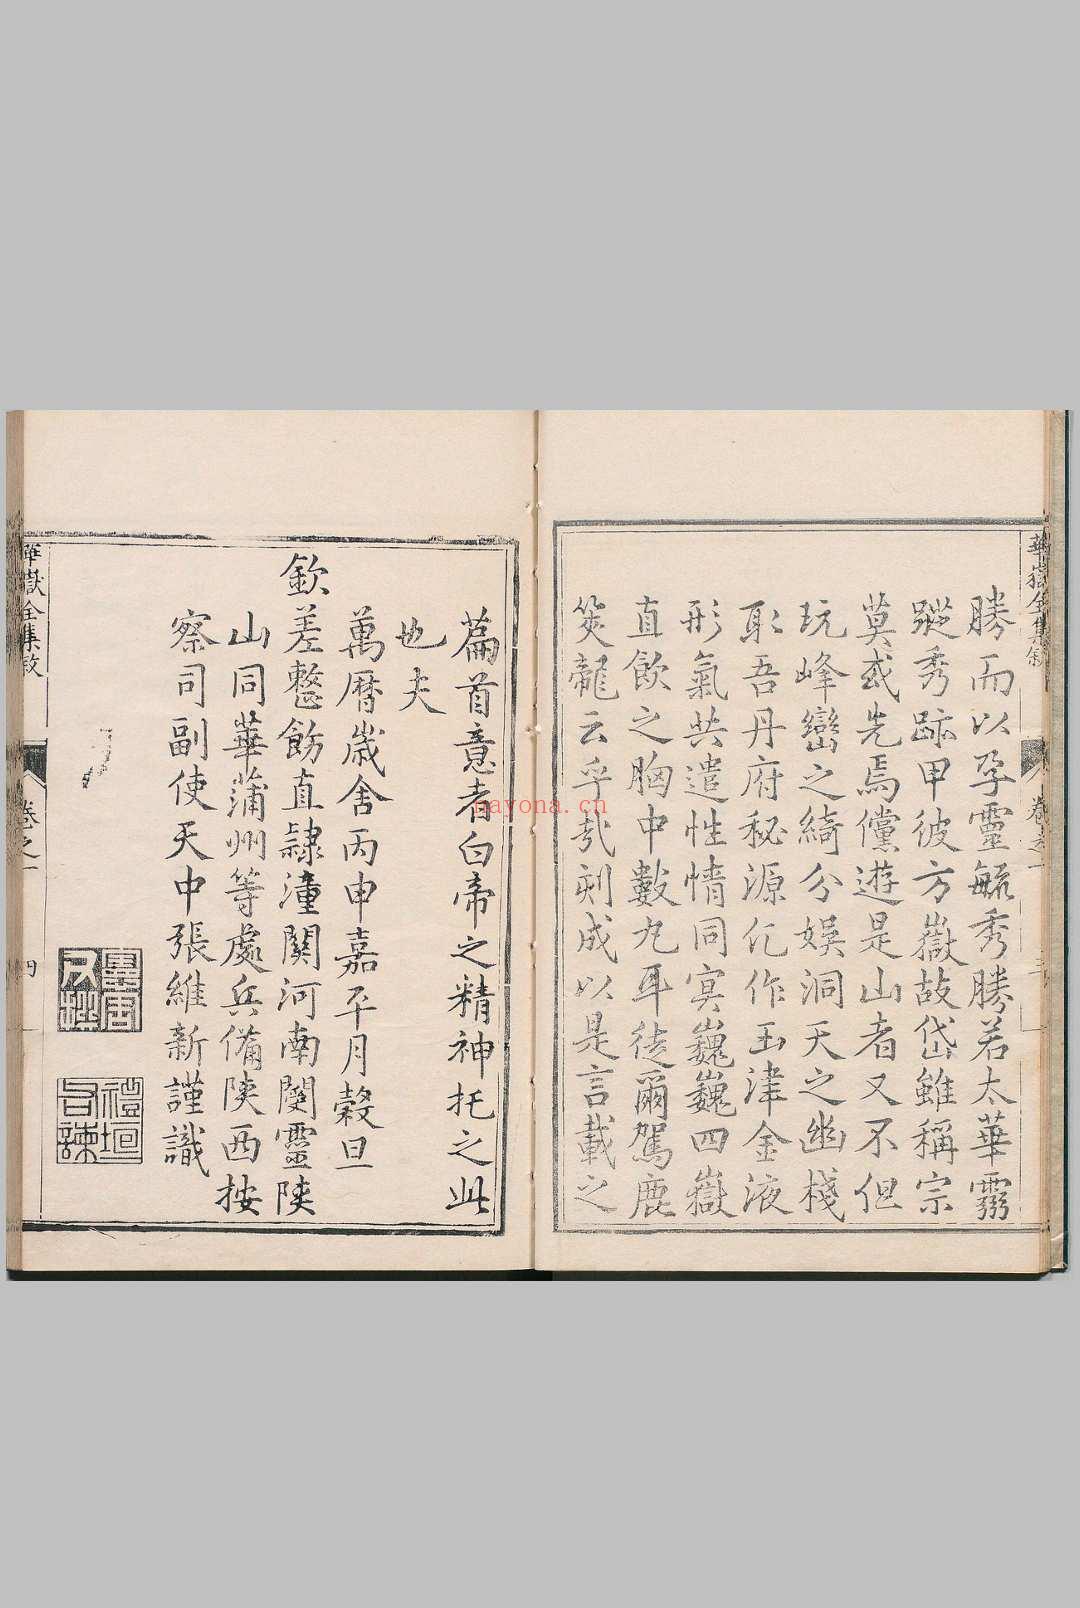 華嶽全集敘
卷之一
三
勝而以孕靈毓秀勝若太華靈
蹤秀跡甲彼方嶽故岱雖稱宗
莫或先焉儻遊是山者又不但
玩峰巒之綺分娛洞天之幽棧
耴吾丹府秘源化作玉津金液
形氣共遣性情同寞巍巍四嶽
直飲之胸中數九耳徒爾駕鹿
筴龍云乎哉刻成以是言載之
篇首意者白帝之精神托之此
也夫
萬曆歲舍丙申嘉平月穀旦
欽差整飭直隷潼關河南閿靈陝
山同華蒲州等處兵備陝西按
察司副使天中張維新謹識
禮垣
右諫
華嶽全集敘
卷之一
四
nayona.cn